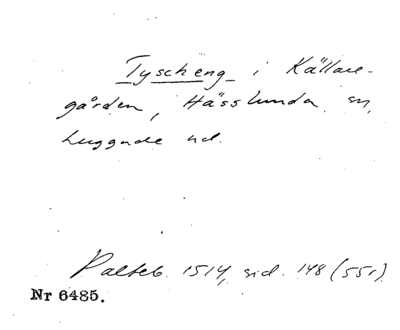 Tyscheng i Källare-
gården, Hässlunda sn,
huggde ud.
Palteb. 1514, sid. 148 (551).
Nr 6485.